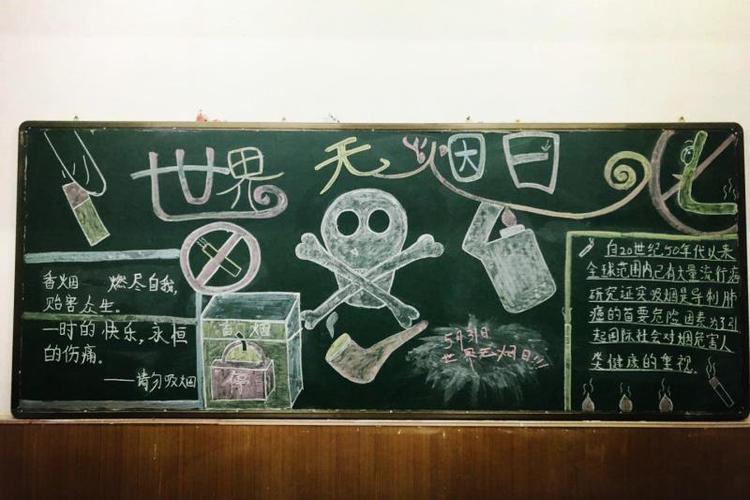 世界无烟日
香烟 燃尽自我,
贻害众生。
一时的快乐,永恒
的伤痛。
——请勿吸烟
香烟
停
5月31日
世界无烟日!!!
自20世纪50年代以来
全球范围内已有大量流行病
研究证实吸烟是导制肺
癌的首要危险因素.为了引
起国际社会对烟危害人
类健康的重视.